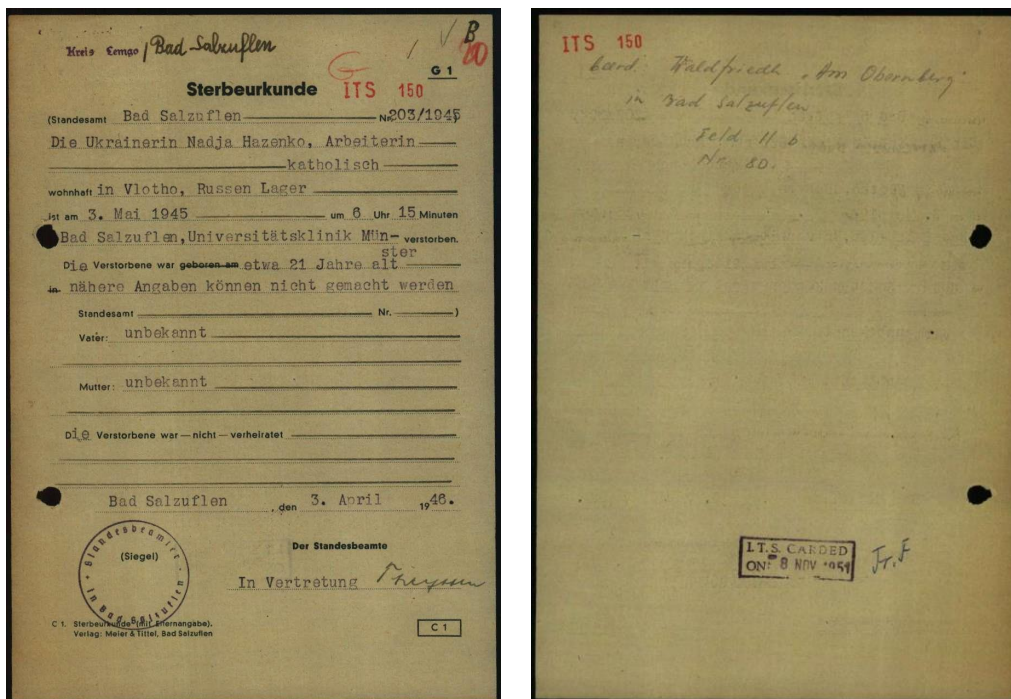 Kreis Lemgo / Bad Salzuflen
B
20
G 1
Sterbeurkunde ITS 150
(Standesamt Bad Salzuflen Nr. 203/1945)
Die Ukrainerin Nadja Hazenko, Arbeiterin
katholisch
wohnhaft in Vlotho, Russen Lager
ist am 3. Mai 1945 um 6 Uhr 15 Minuten
Bad Salzuflen, Universitätsklinik Mün-
ster verstorben.
Die Verstorbene war geboren am etwa 21 Jahre alt
in nähere Angaben können nicht gemacht werden
Standesamt Nr. )
Vater: unbekannt
Mutter: unbekannt
Die Verstorbene war — nicht — verheiratet
Bad Salzuflen, den 3. April 1946.
Standesbeamte in Bad Salzuflen
(Siegel)
Der Standesbeamte
In Vertretung
C 1. Sterbeurkunde (mit Elternangabe).
Verlag: Meier & Tittel, Bad Salzuflen
C 1
ITS 150
beerd. Waldfriedh. "Am Obernberg"
in Bad Salzuflen
Feld II b
Nr. 80.
I.T.S. CARDED
ON: 8 NOV 1951
Fr. F